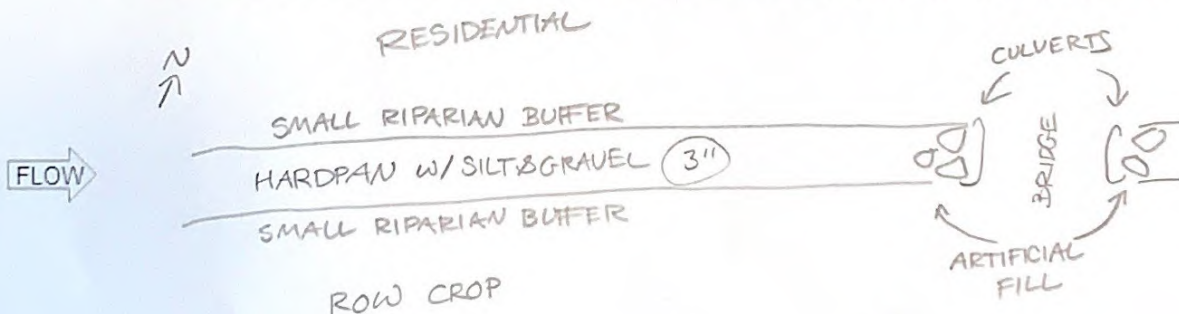 RESIDENTIAL
N
CULVERTS
SMALL RIPARIAN BUFFER
FLOW
HARDPAN W/ SILT & GRAVEL 3"
BRIDGE
SMALL RIPARIAN BUFFER
ARTIFICIAL
FILL
ROW CROP